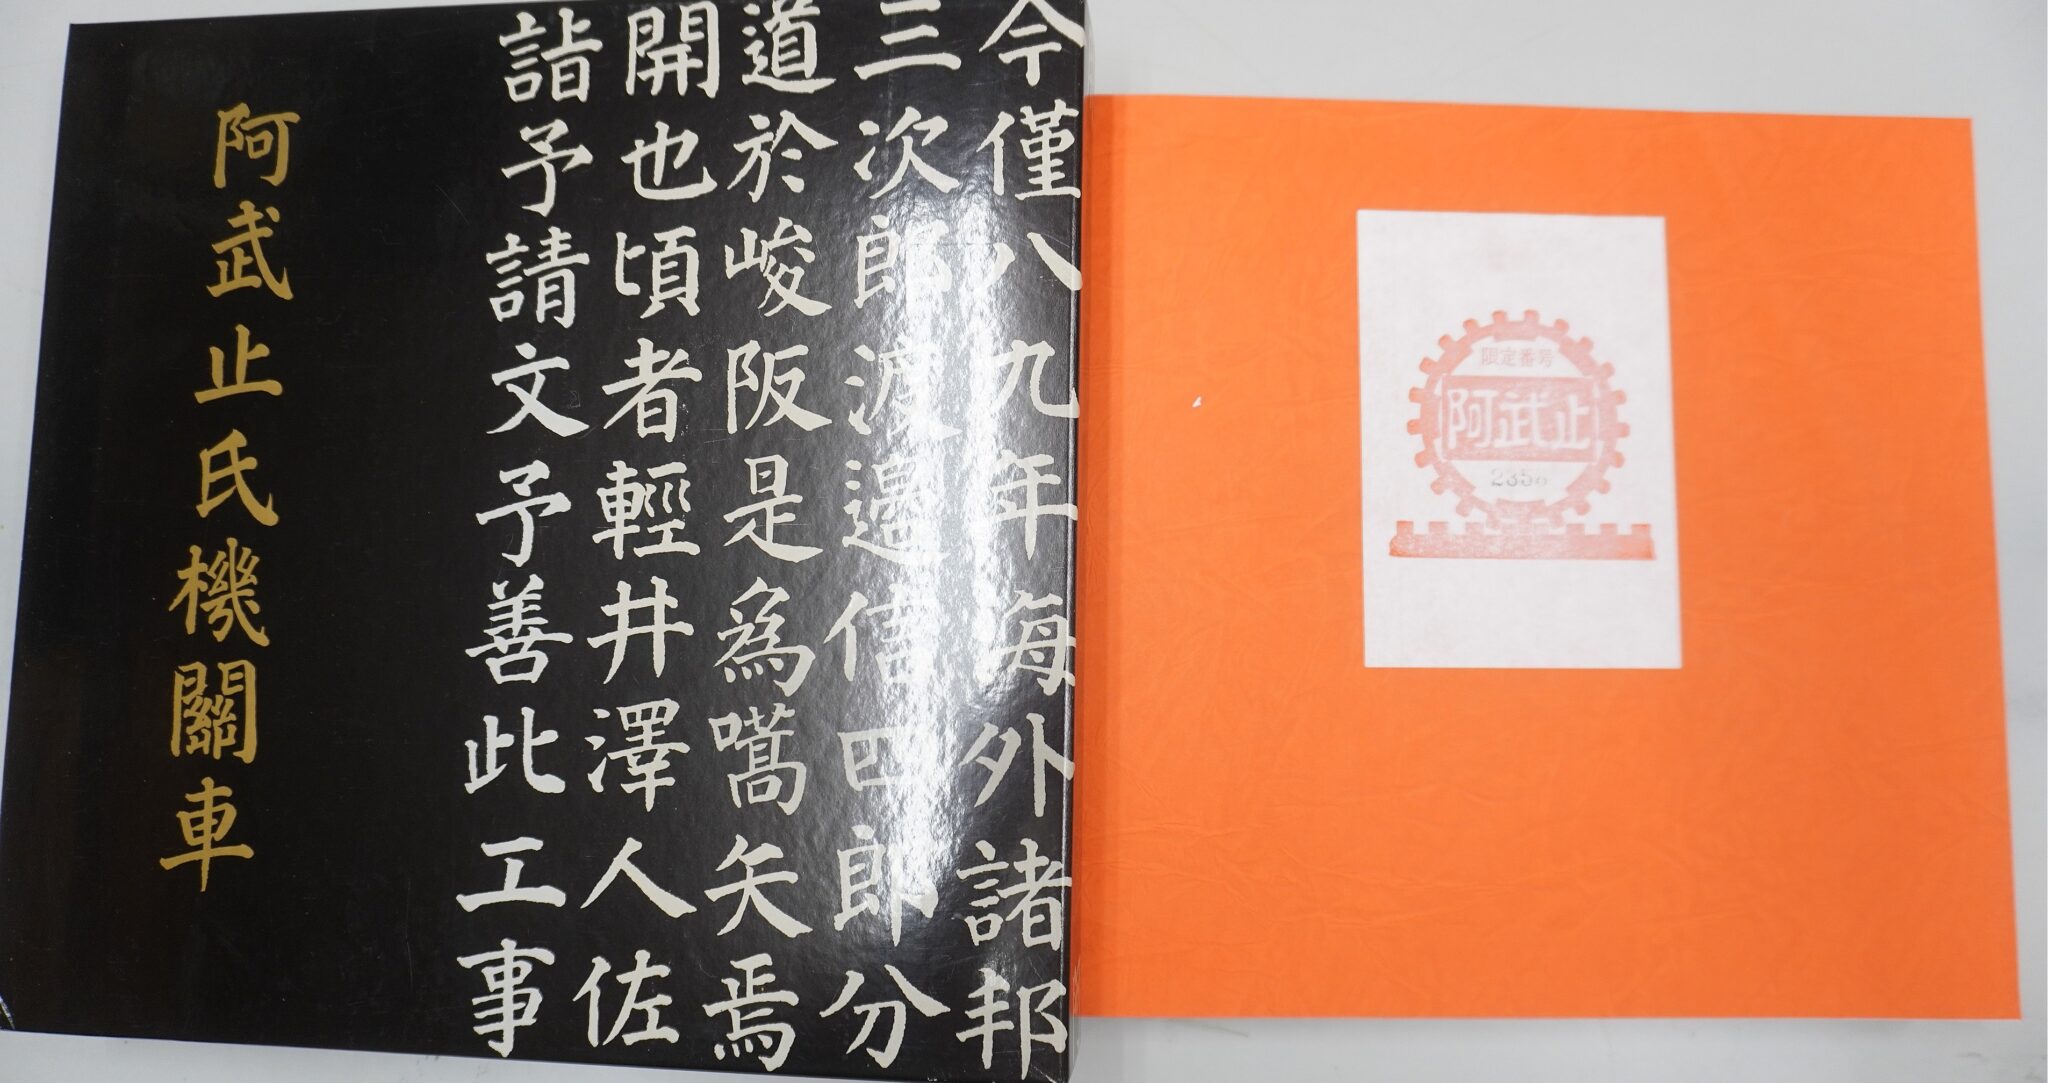 阿武止氏機關車
今僅八九年海外諸邦
三次郎渡邉信四郎分
道於峻阪是為嚆矢焉
開也頃者輕井澤人佐
詣予請文予善此工事
限定番号
阿武止